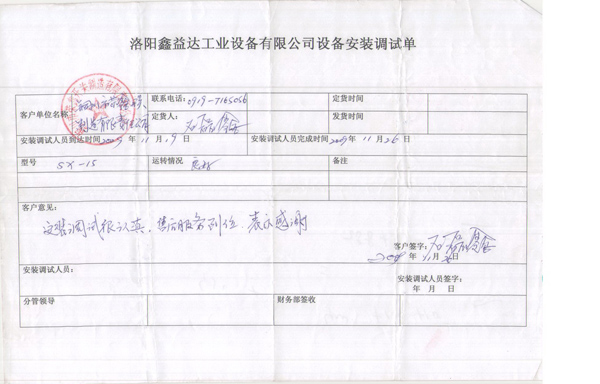 洛阳鑫益达工业设备有限公司设备安装调试单
客户单位名称
联系电话：0919-7165056
定货时间
定货人：
发货时间
安装调试人员到达时间2009年 11月 19日
安装调试人员完成时间2009年11月26日
型号 SX-15
运转情况 良好
备注
客户意见：
安装调试很认真，售后服务到位，表示感谢
客户签字：
2009年 11月 日
安装调试人员：
安装调试人员签字：
年 月 日
分管领导
财务部签收